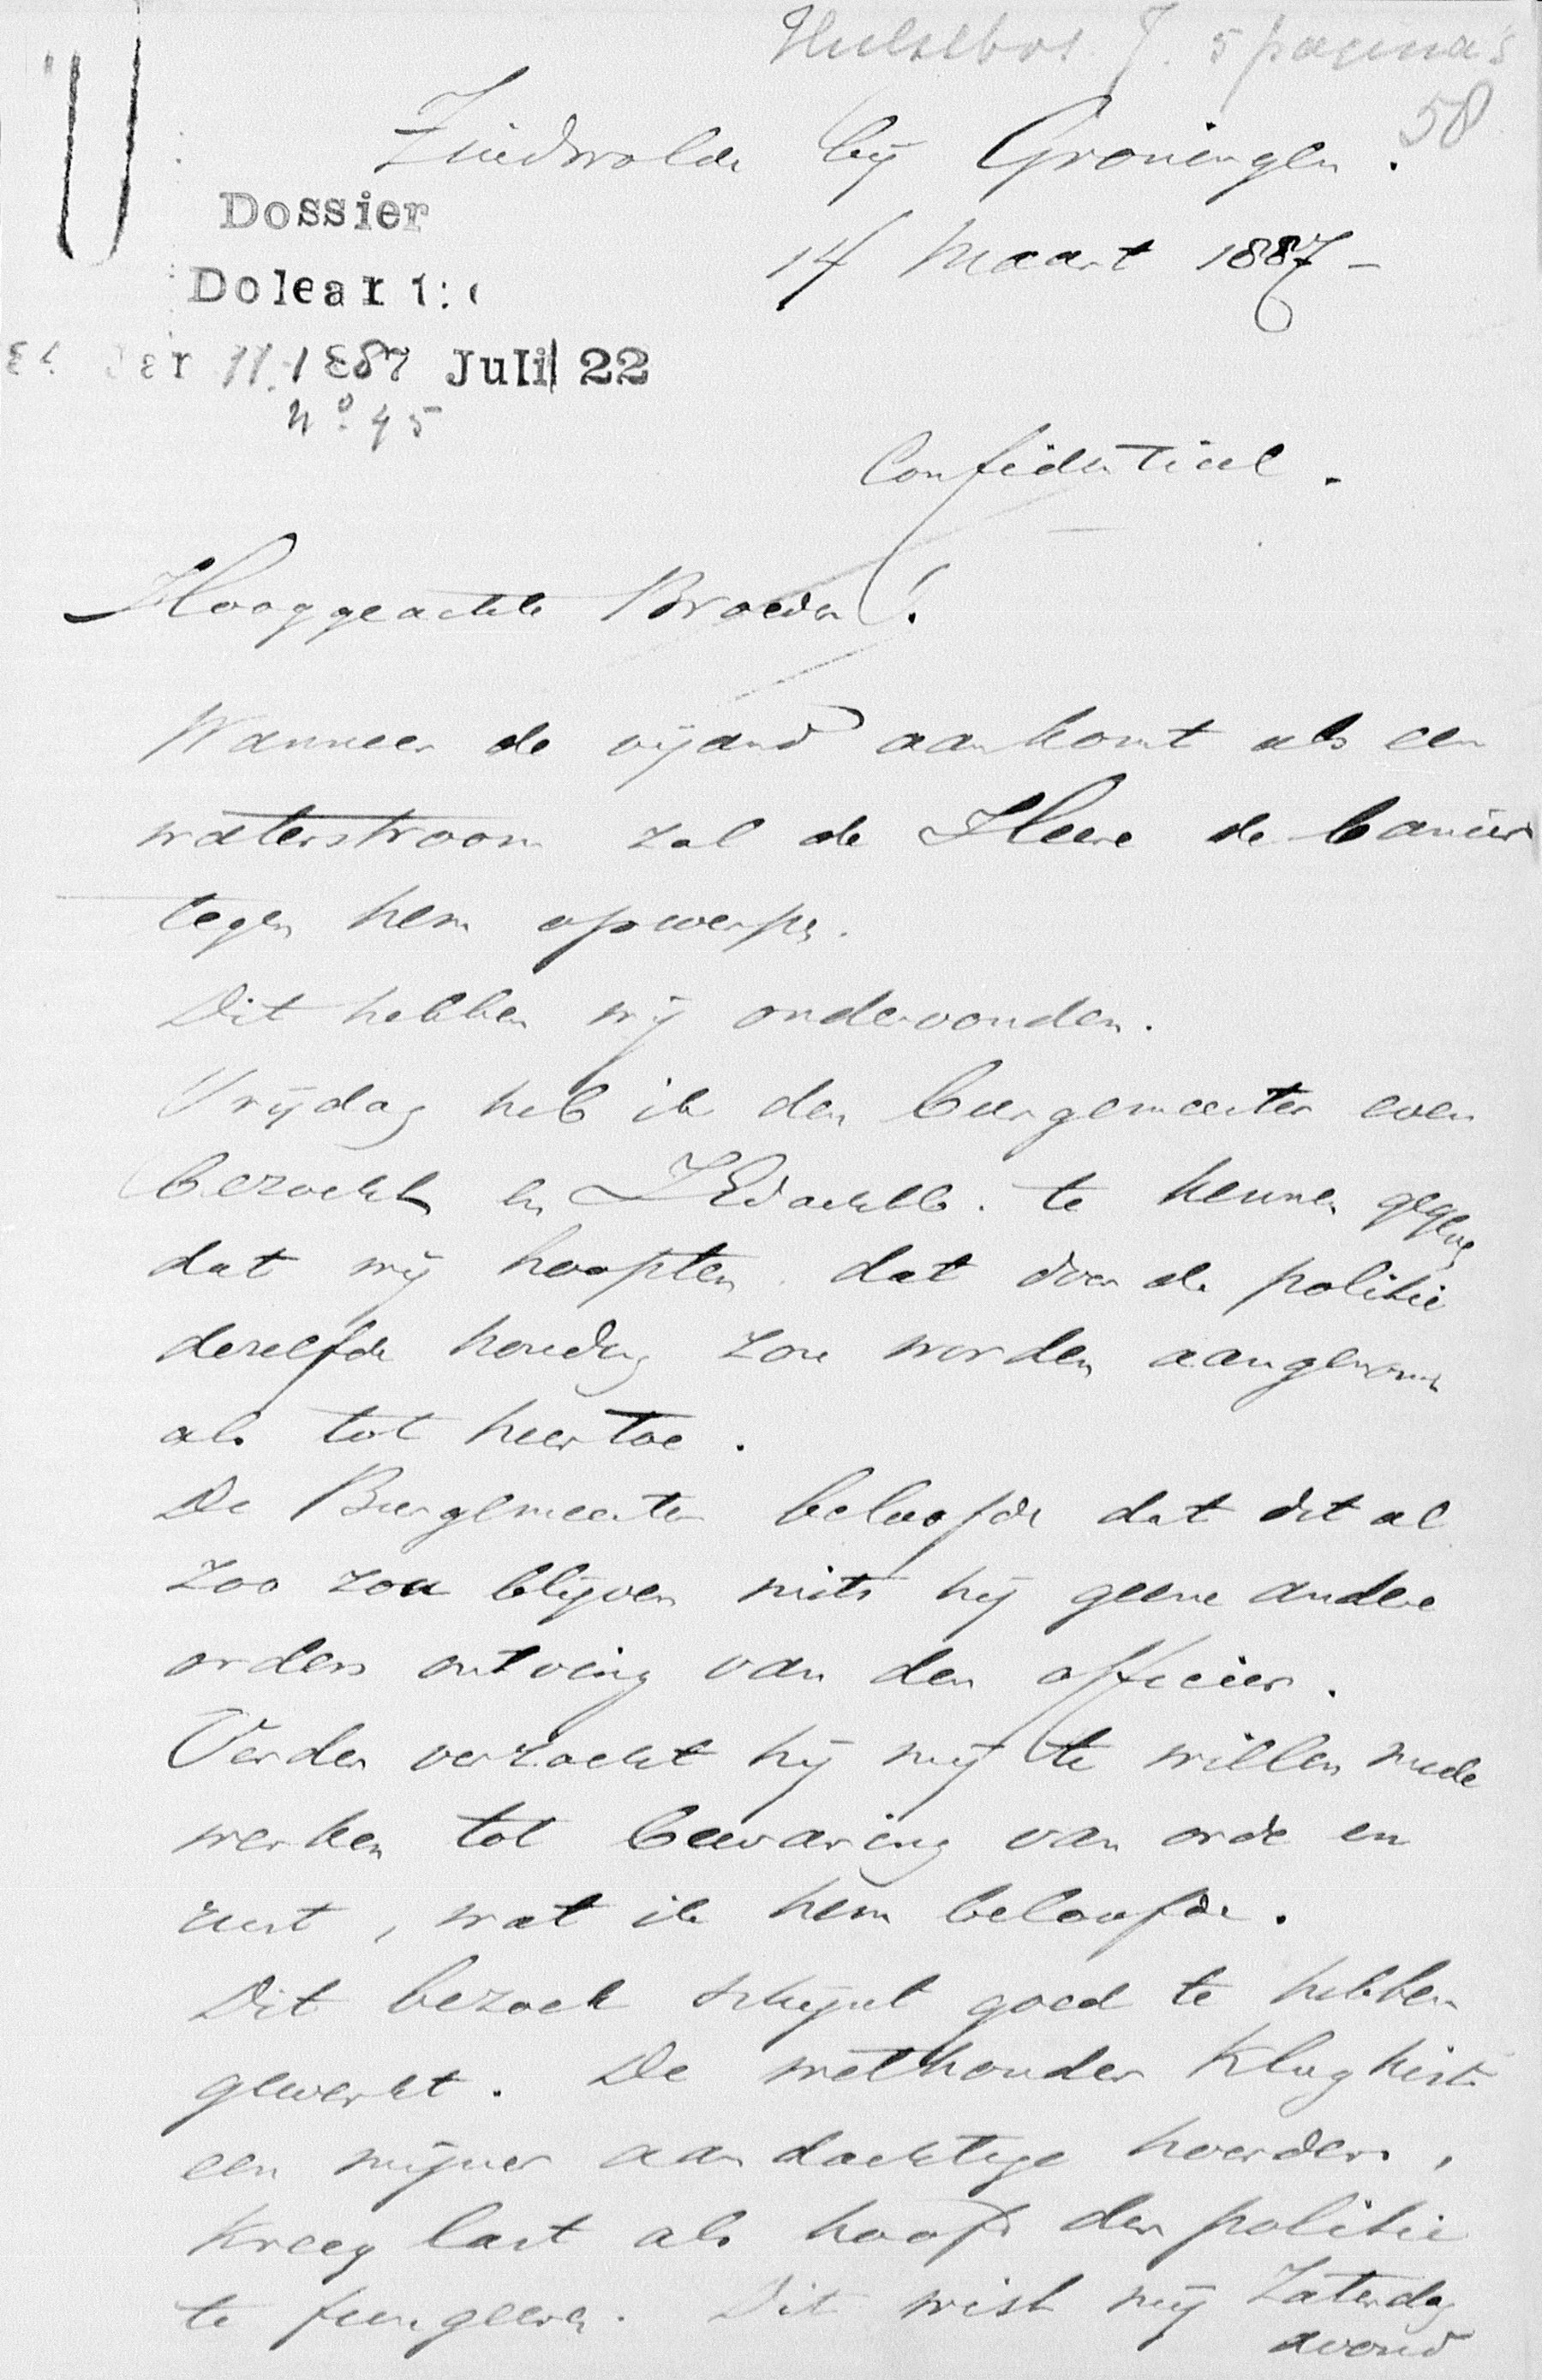 Hulsebos. J. 5 pagina's
58
Zuidwolde bij Groningen.
14 Maart 1887 -
Dossier
Dolear
11. 1887 Juli 22
no 45
Confidentieel.
Hooggeachte Broeder!
Wanneer de vijand aankomt als een
waterstroom zal de Heere de banier
tegen hem opwerpen.
Dit hebben wij ondervonden.
Vrijdag heb ik den burgemeester even
bezocht en ZEdachtb. te kennen gegeven
dat wij hoopten dat door de politie
dezelfde houding zou worden aangenomen
als tot heer toe.
De Burgemeester beloofde dat dit al
zoo zou blijven mits hij geene andere
orders ontving van den officier.
Verder verzocht hij mij te willen mede
werken tot bewaring van orde en
rust, wat ik hem beloofde.
Dit bezoek schijnt goed te hebben
gewerkt. De wethouder Klugkist
een mijner aandachtige hoorders,
kreeg last als hoofd der politie
te fungeeren. Dit wist mij Zaterdag
avond